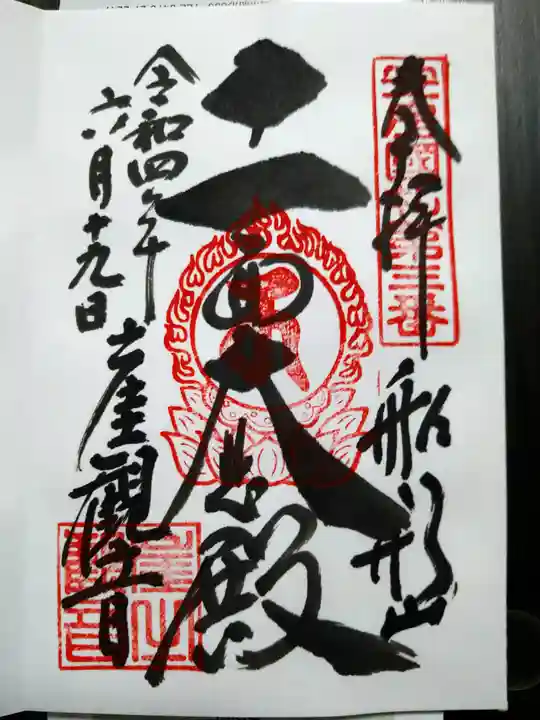 奉拝
船形山
安房國札第三番
十一面大悲殿
令和四年
六月十九日
崖観音